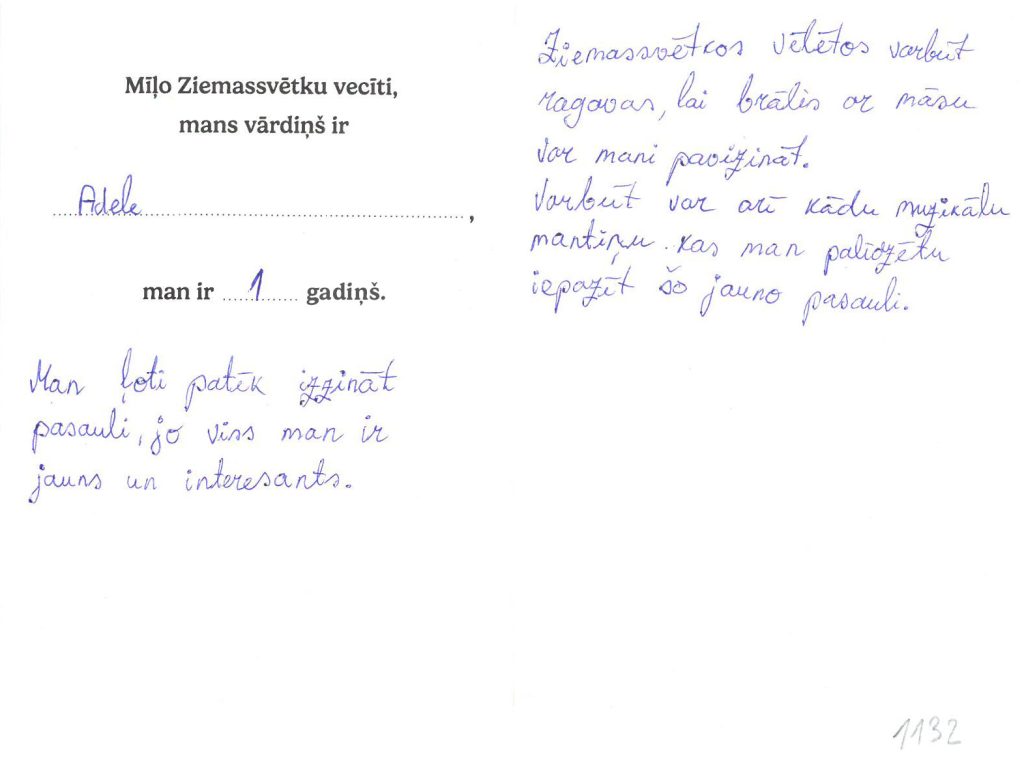 Mīļo Ziemassvētku vecīti,
mans vārdiņš ir
Adele,
man ir 1 gadiņš.
Man ļoti patīk izzināt
pasauli, jo viss man ir
jauns un interesants.
Ziemassvētkos vēlētos varbūt
ragavas, lai brālis ar māsu
var mani pavizināt.
Varbūt var arī kādu muzikālu
mantiņu. kas man palīdzētu
iepazīt šo jauno pasauli.
1132